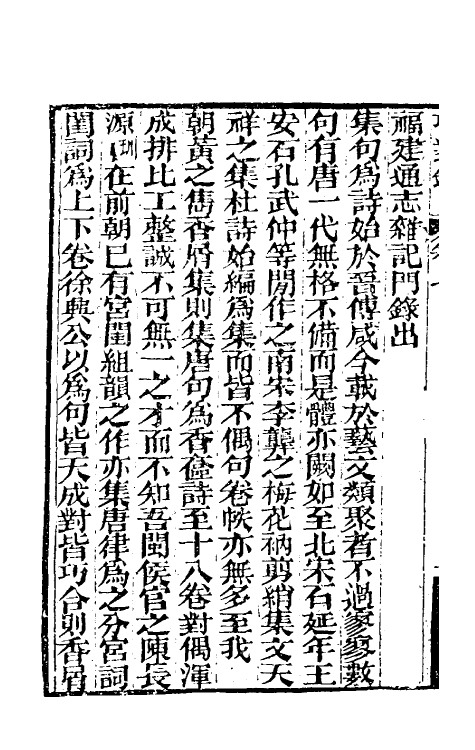 福建通志雜記門錄出
集句爲詩始於晉傅咸今載於藝文類聚者不過寥寥數
句有唐一代無格不備而是體亦闕如至北宋石延年王
安石孔武仲等間作之南宋李龏之梅花衲剪綃集文天
祥之集杜詩始編爲集而皆不偶句卷帙亦無多至我
朝黃之雋香屑集則集唐句爲香奩詩至十八卷對偶渾
成排比工整誠不可無一之才而不知吾閩侯官之陳長
源 在前朝已有宮閨組韻之作亦集唐律爲之分宮詞
閨詞爲上下卷徐興公以爲句皆天成對皆巧合則香屑